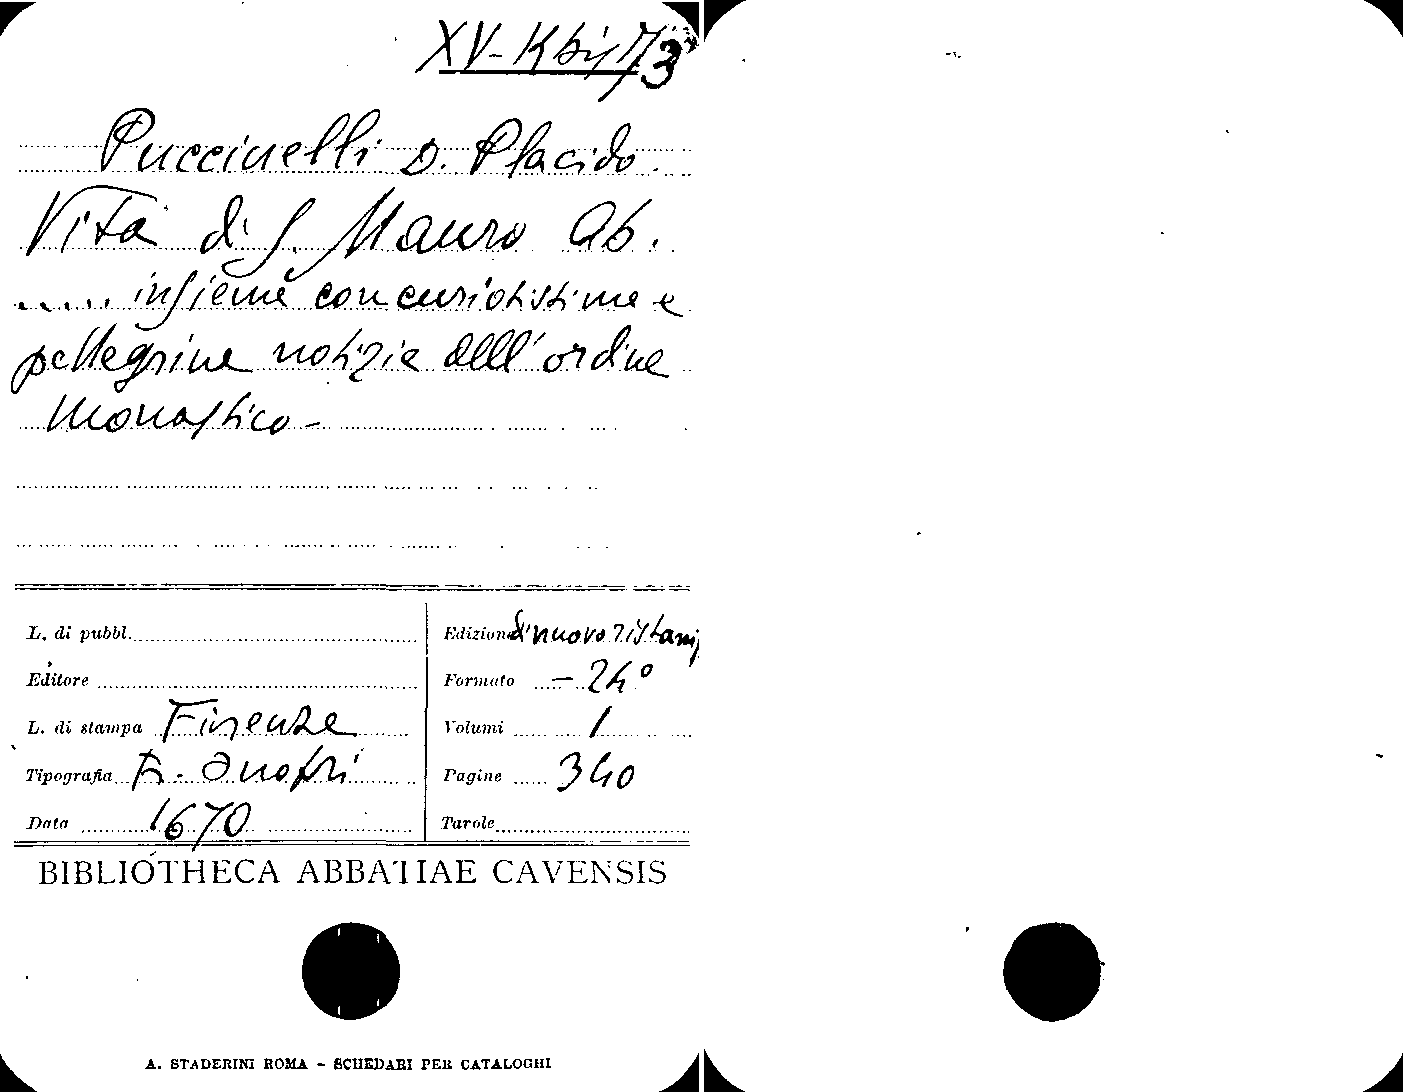 XV-K bis 17/3
Puccinelli D. Placido.
Vita di S. Mauro Ab.
..... insieme con curiosissime e
pellegrine notizie dell'ordine
monastico -
L. di pubbl.
Edizione di nuovo ristamp
Editore
Formato - 24°
L. di stampa Firenze
Volumi 1
Tipografia Onofri
Pagine 340
Data 1670
Tavole
BIBLIOTHECA ABBATIAE CAVENSIS
A. STADERINI ROMA - SCHEDARI PER CATALOGHI